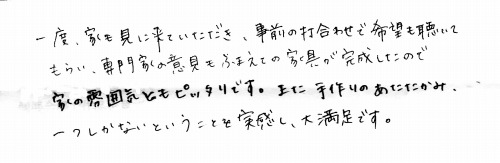 一度、家も見に来ていただき、事前の打合わせで希望も聴いて
もらい、専門家の意見もふまえての家具が完成したので
家の雰囲気ともピッタリです。また 手作りのあたたかみ、
一つしかないということを実感し、大満足です。